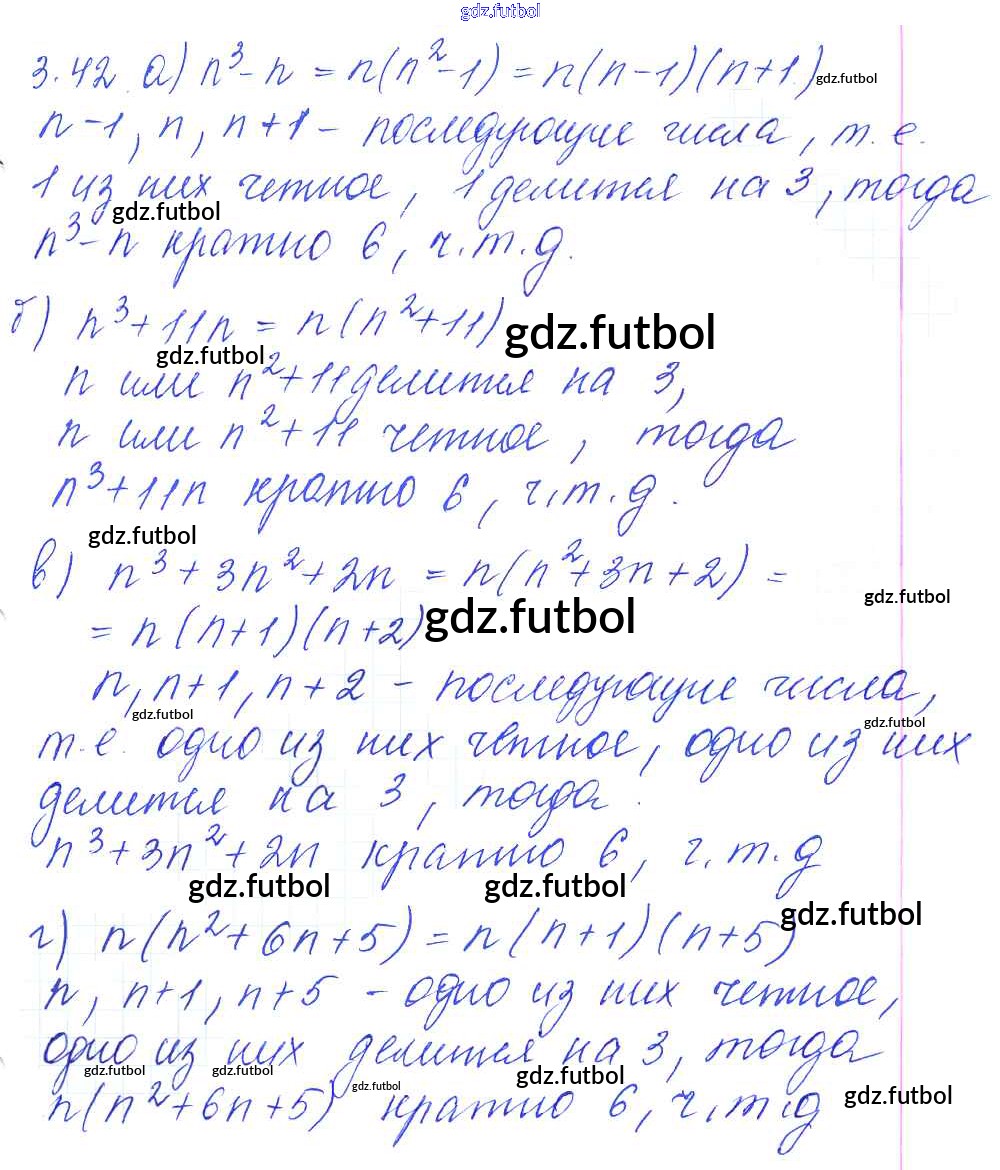 gdz.futbol
3.42 а) n³ - n = n(n² - 1) = n(n-1)(n+1) gdz.futbol
n-1, n, n+1 - последующие числа, т.е.
1 из них четное, 1 делится на 3, тогда
gdz.futbol
n³ - n кратно 6, ч.т.д.
б) n³ + 11n = n(n² + 11) gdz.futbol
gdz.futbol
n или n² + 11 делится на 3,
n или n² + 11 четное, тогда
n³ + 11n кратно 6, ч.т.д.
gdz.futbol
в) n³ + 3n² + 2n = n(n² + 3n + 2) =
gdz.futbol
= n(n+1)(n+2) gdz.futbol
n, n+1, n+2 - последующие числа,
gdz.futbol gdz.futbol
т.е. одно из них четное, одно из них
делится на 3, тогда
n³ + 3n² + 2n кратно 6, ч.т.д
gdz.futbol gdz.futbol gdz.futbol
г) n(n² + 6n + 5) = n(n+1)(n+5)
n, n+1, n+5 - одно из них четное,
одно из них делится на 3, тогда
gdz.futbol gdz.futbol gdz.futbol gdz.futbol gdz.futbol
n(n² + 6n + 5) кратно 6, ч.т.д